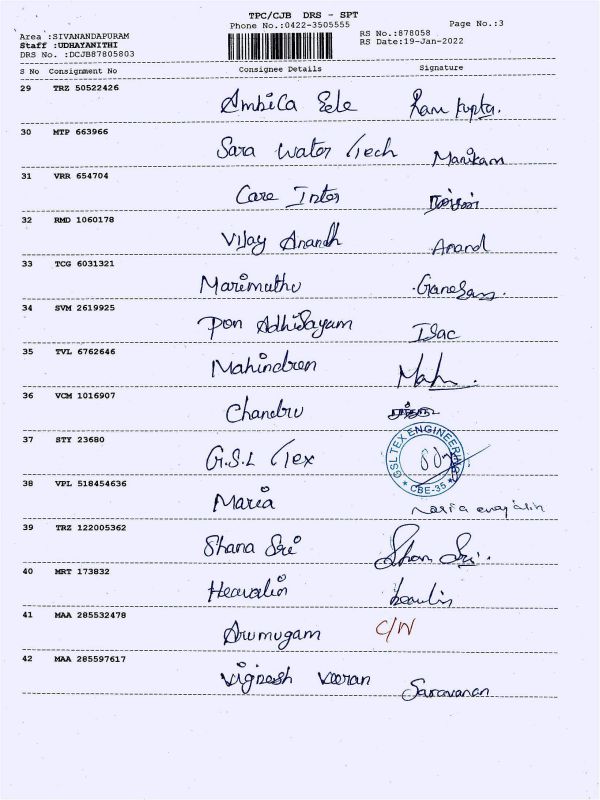 TPC/CJB DRS - SPT
Phone No.:0422-3505555
Page No.:3
Area :SIVANANDAPURAM
RS No.:878058
Staff :UDHAYANITHI
RS Date:19-Jan-2022
DRS No. :DCJB87805803
S No Consignment No Consignee Details Signature
29 TRZ 50522426 Ambica Ram Gupta.
30 MTP 663966 Sara Water Tech Manikam
31 VRR 654704 Care Inter
32 RMD 1060178 Vijay Anandh Anand
33 TCG 6031321 Marimuthu Ganesan
34 SVM 2619925 Pon Adhisayam Isac
35 TVL 6762646 Mahindren
36 VCM 1016907 Chandru
37 STY 23680 G.S.L Tex GSL TEX ENGINEERING * CBE-35 *
38 VPL 518454636 Maria maria
39 TRZ 122005362 Shana Sri Shan Sri.
40 MRT 173832 Heavalin
41 MAA 285532478 Arumugam C/N
42 MAA 285597617 Vignesh Veeran Saravanan